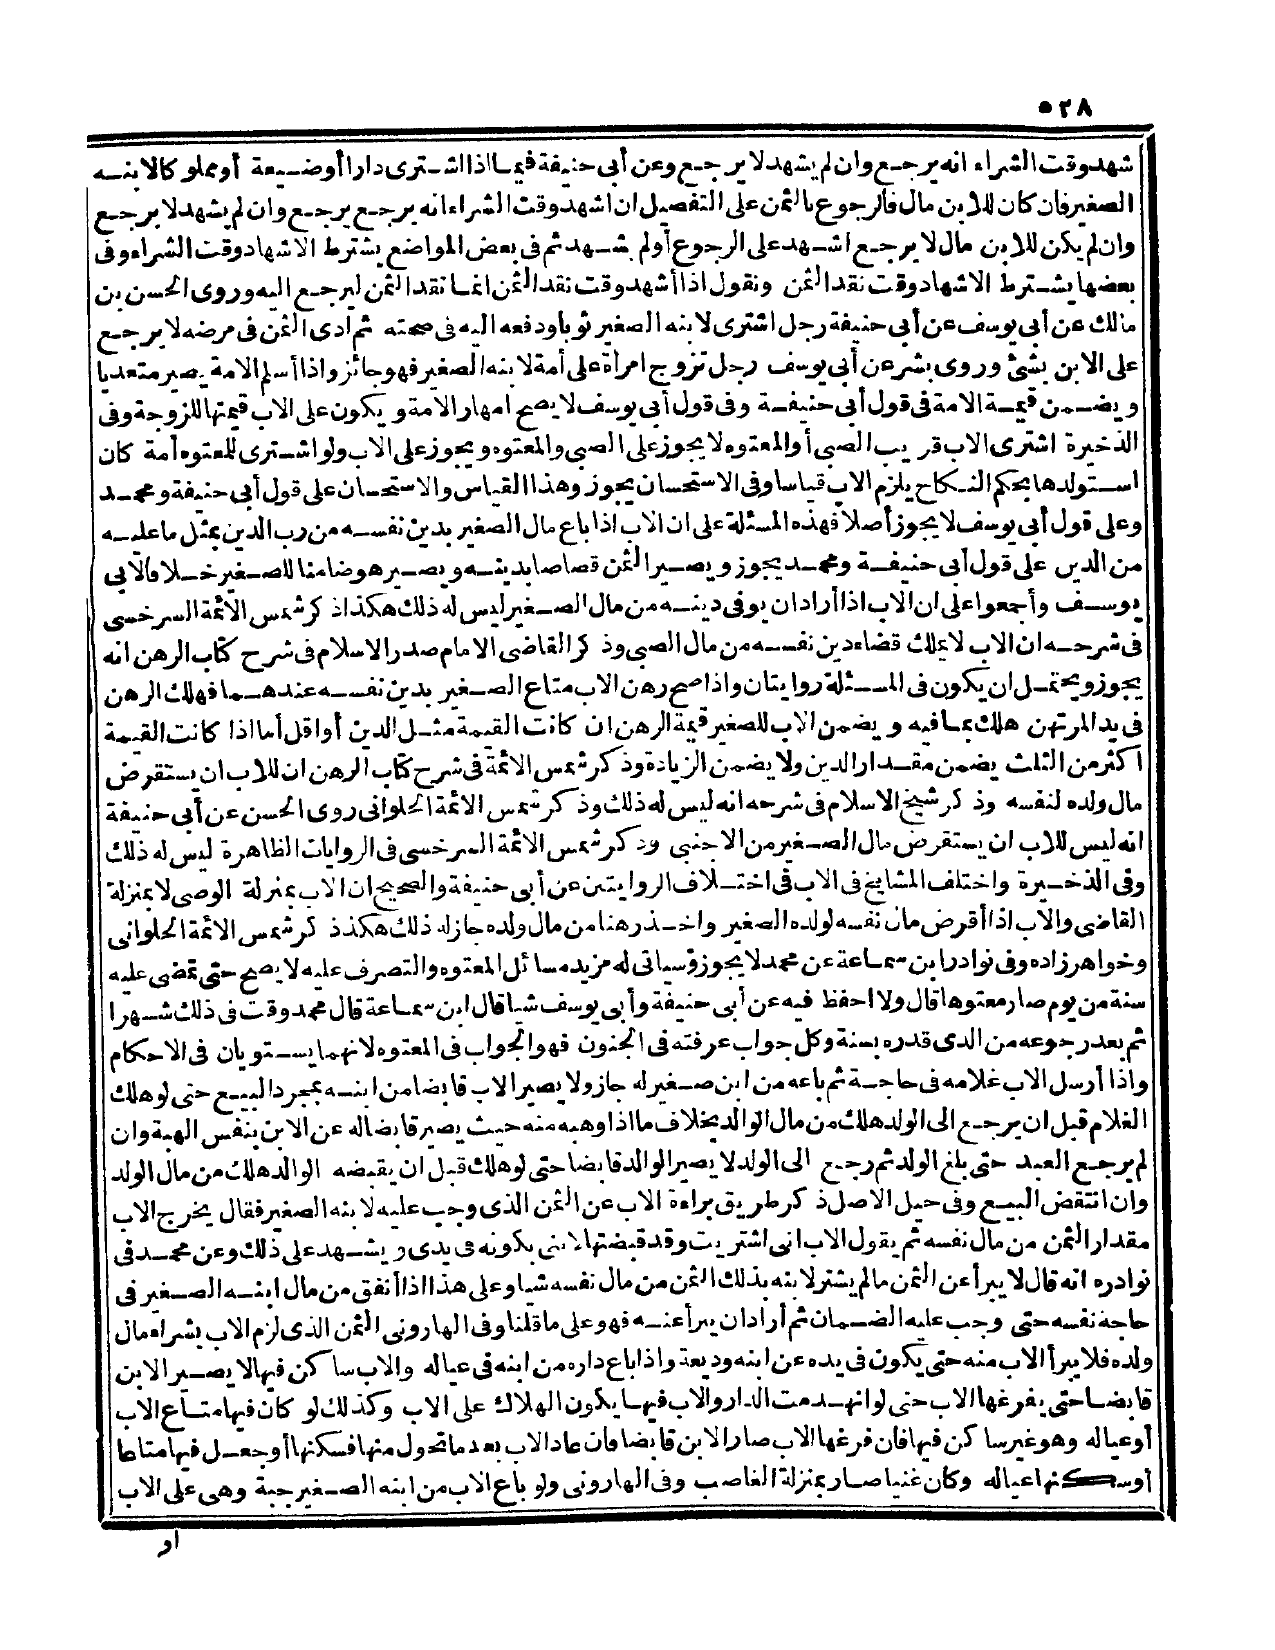 ٥٢٨
شهد وقت الشراء انه يرجع وان لم يشهد لا يرجع وعن أبى حنيفة فيما اذا اشترى دارا أوضيعة أومملوكا لابنه
الصغير فان كان للابن مال فالرجوع بالثمن على التفصيل ان اشهد وقت الشراء انه يرجع يرجع وان لم يشهد لا يرجع
وان لم يكن للابن مال لا يرجع اشهد على الرجوع أولم شهد ثم فى بعض المواضع يشترط الاشهاد وقت الشراء وفى
بعضها يشترط الاشهاد وقت نقد الثمن ونقول اذا أشهد وقت نقد الثمن انما نقد الثمن ليرجع اليه وروى الحسن بن
مالك عن أبى يوسف عن أبى حنيفة رجل اشترى لابنه الصغير ثوبا ودفعه اليه فى صحته ثم ادى الثمن فى مرضه لا يرجع
على الابن بشئ وروى بشر عن أبى يوسف رجل تزوج امرأة على أمة لابنه الصغير فهو جائز واذا أسلم الامة يصير متعديا
ويضمن قيمة الامة فى قول أبى حنيفة وفى قول أبى يوسف لا يصح امهار الامة ويكون على الاب قيمتها للزوجة وفى
الذخيرة اشترى الاب قريب الصبى أوالمعتوه لا يجوز على الصبى والمعتوه ويجوز على الاب ولو اشترى للمعتوه أمة كان
استولدها بحكم النكاح يلزم الاب قياسا وفى الاستحسان يجوز وهذا القياس والاستحسان على قول أبى حنيفة ومحمد
وعلى قول أبى يوسف لا يجوز أصلا فهذه المسئلة على ان الاب اذا باع مال الصغير بدين نفسه من رب الدين بمثل ما عليه
من الدين على قول أبى حنيفة ومحمد يجوز ويصير الثمن قصاصا بدينه ويصير هو ضامنا للصغير خلافا لابى
يوسف وأجمعوا على ان الاب اذا أراد ان يوفى دينه من مال الصغير ليس له ذلك هكذا ذكر شمس الائمة السرخسى
فى شرحه ان الاب لا يملك قضاء دين نفسه من مال الصبى وذكر القاضى الامام صدر الاسلام فى شرح كتاب الرهن انه
يجوز ويحتمل ان يكون فى المسئلة روايتان واذا صح رهن الاب متاع الصغير بدين نفسه عندهما فهلك الرهن
فى يد المرتهن هلك بما فيه ويضمن الاب للصغير قيمة الرهن ان كانت القيمة مثل الدين أو اقل أما اذا كانت القيمة
اكثر من الثلث يضمن مقدار الدين ولا يضمن الزيادة وذكر شمس الائمة فى شرح كتاب الرهن ان للاب ان يستقرض
مال ولده لنفسه وذكر شيخ الاسلام فى شرحه انه ليس له ذلك وذكر شمس الائمة الحلوانى روى الحسن عن أبى حنيفة
انه ليس للاب ان يستقرض مال الصغير من الاجنبى وذكر شمس الائمة السرخسى فى الروايات الظاهرة ليس له ذلك
وفى الذخيرة واختلف المشايخ فى الاب فى اختلاف الروايتين عن أبى حنيفة والصحيح ان الاب بمنزلة الوصى لا بمنزلة
القاضى والاب اذا أقرض مال نفسه لولده الصغير واخذ رهنا من مال ولده جاز له ذلك هكذا ذكر شمس الائمة الحلوانى
وخواهر زاده وفى نوادر ابن سماعة عن محمد لا يجوز وسياتى له مزيد مسائل المعتوه والتصرف عليه لا يصح حتى تمضى عليه
سنة من يوم صار معتوها قال ولا احفظ فيه عن أبى حنيفة وأبى يوسف شيا قال ابن سماعة قال محمد وقت فى ذلك شهرا
ثم بعد رجوعه من الدى قدره بسنة وكل جواب عرفته فى الجنون فهو الجواب فى المعتوه لانهما يستويان فى الاحكام
واذا أرسل الاب غلامه فى حاجة ثم باعه من ابن صغير له جاز ولا يصير الاب قابضا من ابنه بمجرد البيع حتى لو هلك
الغلام قبل ان يرجع الى الولد هلك من مال الوالد بخلاف ما اذا وهبه منه حيث يصير قابضا له عن الابن بنفس الهبة وان
لم يرجع العبد حتى بلغ الولد ثم رجع الى الولد لا يصير الوالد قابضا حتى لو هلك قبل ان يقبضه الوالد هلك من مال الولد
وان انتقض البيع وفى حيل الاصل ذكر طريق براءة الاب عن الثمن الذى وجب عليه لابنه الصغير فقال يخرج الاب
مقدار الثمن من مال نفسه ثم يقول الاب انى اشتريت وقد قبضتها لابنى بكونه فى يدى ويشهد على ذلك وعن محمد فى
نوادره انه قال لا يبرأ عن الثمن ما لم يشتر لابنه بذلك الثمن من مال نفسه شيا وعلى هذا اذا أنفق من مال ابنه الصغير فى
حاجة نفسه حتى وجب عليه الضمان ثم أراد ان يبرأ عنه فهو على ما قلنا وفى الهارونى الثمن الذى لزم الاب بشراء مال
ولده فلا يبرأ الاب منه حتى يكون فى يده عن ابنه وديعة واذا باع داره من ابنه فى عياله والاب ساكن فيها لا يصير الابن
قابضا حتى يفرغها الاب حتى لو انهدمت الدار والاب فيها يكون الهلاك على الاب وكذلك لو كان فيها متاع الاب
أوعياله وهو غير ساكن فيها فان فرغها الاب صار الابن قابضا فان عاد الاب بعد ما تحول منها فسكنها أوجعل فيها متاعا
أوسكنها عياله وكان غنيا صار بمنزلة الغاصب وفى الهارونى ولو باع الاب من ابنه الصغير جبة وهى على الاب
او